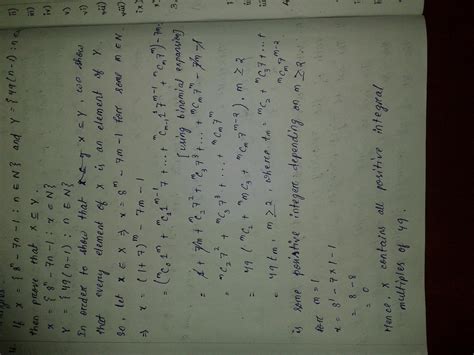 4. If X = {8ⁿ - 7n - 1 : n ∈ N} and Y = {49(n-1) : n ∈
then prove that X ⊆ Y.
X = {8ⁿ - 7n - 1 : x ∈ N}
Y = {49(n-1) : n ∈ N}
In order to show that X ⊆ Y, we show
that every element of X is an element of Y.
So, let x ∈ X ⇒ x = 8ᵐ - 7m - 1 for some m ∈ N
⇒ x = (1 + 7)ᵐ - 7m - 1
= (ᵐC₀ 1ᵐ + ᵐC₁ 1ᵐ⁻¹ 7 + ... + ᵐCₙ₋₁ 1 7ᵐ⁻¹ + ᵐCₙ 7ᵐ) - 7m - 1
[using binomial expansion]
= 1 + 7m + ᵐC₂ 7² + ᵐC₃ 7³ + ... + ᵐCₙ 7ᵐ - 7m - 1
= ᵐC₂ 7² + ᵐC₃ 7³ + ... + ᵐCₙ 7ᵐ
= 49 (ᵐC₂ + ᵐC₃ + ᵐCₙ 7ᵐ⁻²), m ≥ 2
= 49 tm, m ≥ 2, where tm = ᵐC₂ + ᵐC₃ 7 + ... +
ᵐCₙ 7ᵐ⁻²
is some positive integer depending on m ≥ 2
for m = 1
x = 8¹ - 7 × 1 - 1
= 8 - 8
= 0
Hence, X contains all positive integral
multiples of 49.
i)
ii)
iii)
iv)
v)
vi)
vii)
viii)